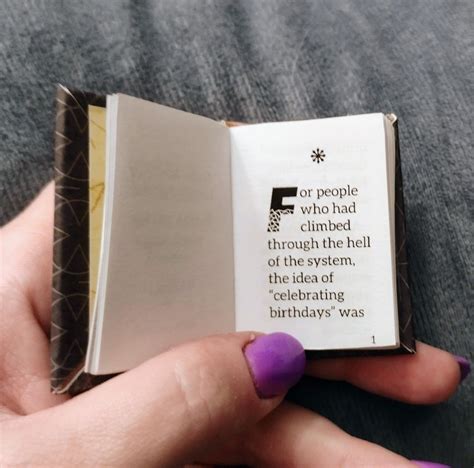 *
For people
who had
climbed
through the hell
of the system,
the idea of
“celebrating
birthdays” was
1